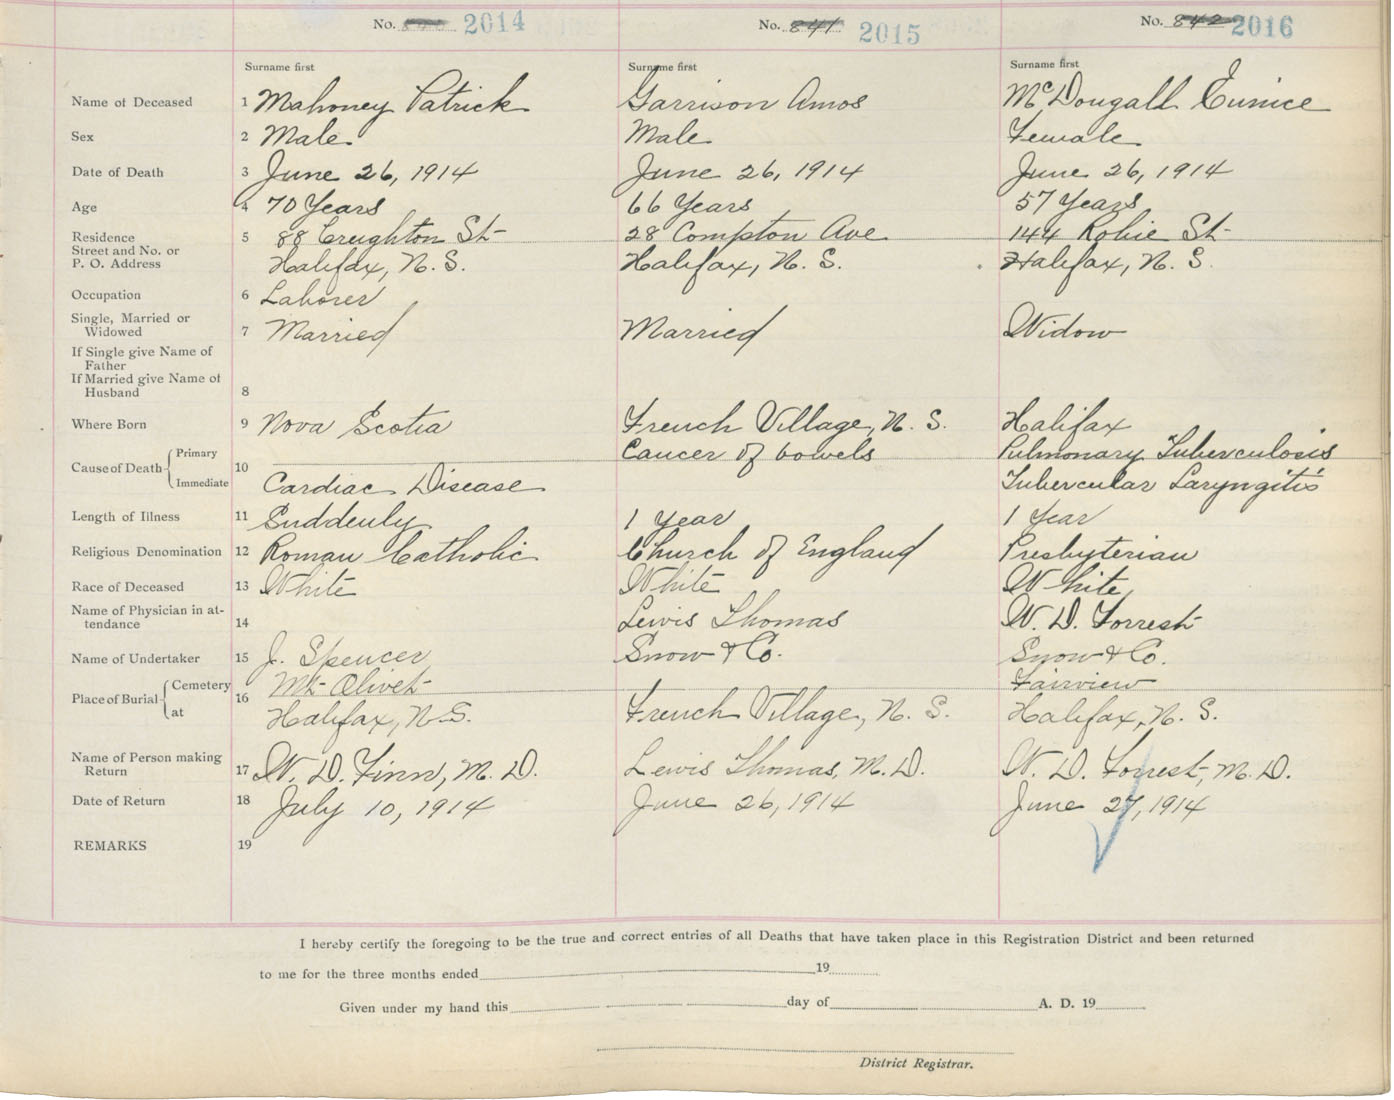 No. 2014 No. 841 2015 No. 842 2016
Surname first Surname first Surname first
Name of Deceased 1 Mahoney Patrick Garrison Amos McDougall Eunice
Sex 2 Male Male Female
Date of Death 3 June 26, 1914 June 26, 1914 June 26, 1914
Age 4 70 Years 66 Years 57 Years
Residence 5 88 Creighton St 28 Compton Ave 144 Robie St
Street and No. or
P. O. Address Halifax, N. S. Halifax, N. S. Halifax, N. S.
Occupation 6 Laborer
Single, Married or
Widowed 7 Married Married Widow
If Single give Name of
Father
If Married give Name of
Husband 8
Where Born 9 Nova Scotia French Village, N. S. Halifax
Cause of Death Primary 10 Cancer of bowels Pulmonary Tuberculosis
Immediate Cardiac Disease Tubercular Laryngitis
Length of Illness 11 Suddenly 1 year 1 Year
Religious Denomination 12 Roman Catholic Church of England Presbyterian
Race of Deceased 13 White White White
Name of Physician in at-
tendance 14 Lewis Thomas W. D. Forrest
Name of Undertaker 15 J. Spencer Snow & Co. Snow & Co.
Place of Burial Cemetery 16 Mt Olivet Fairview
at Halifax, N. S. French Village, N. S. Halifax, N. S.
Name of Person making
Return 17 W. D. Finn, M. D. Lewis Thomas, M. D. W. D. Forrest, M. D.
Date of Return 18 July 10, 1914 June 26, 1914 June 27, 1914
REMARKS 19
I hereby certify the foregoing to be the true and correct entries of all Deaths that have taken place in this Registration District and been returned
to me for the three months ended 19
Given under my hand this day of A. D. 19
District Registrar.